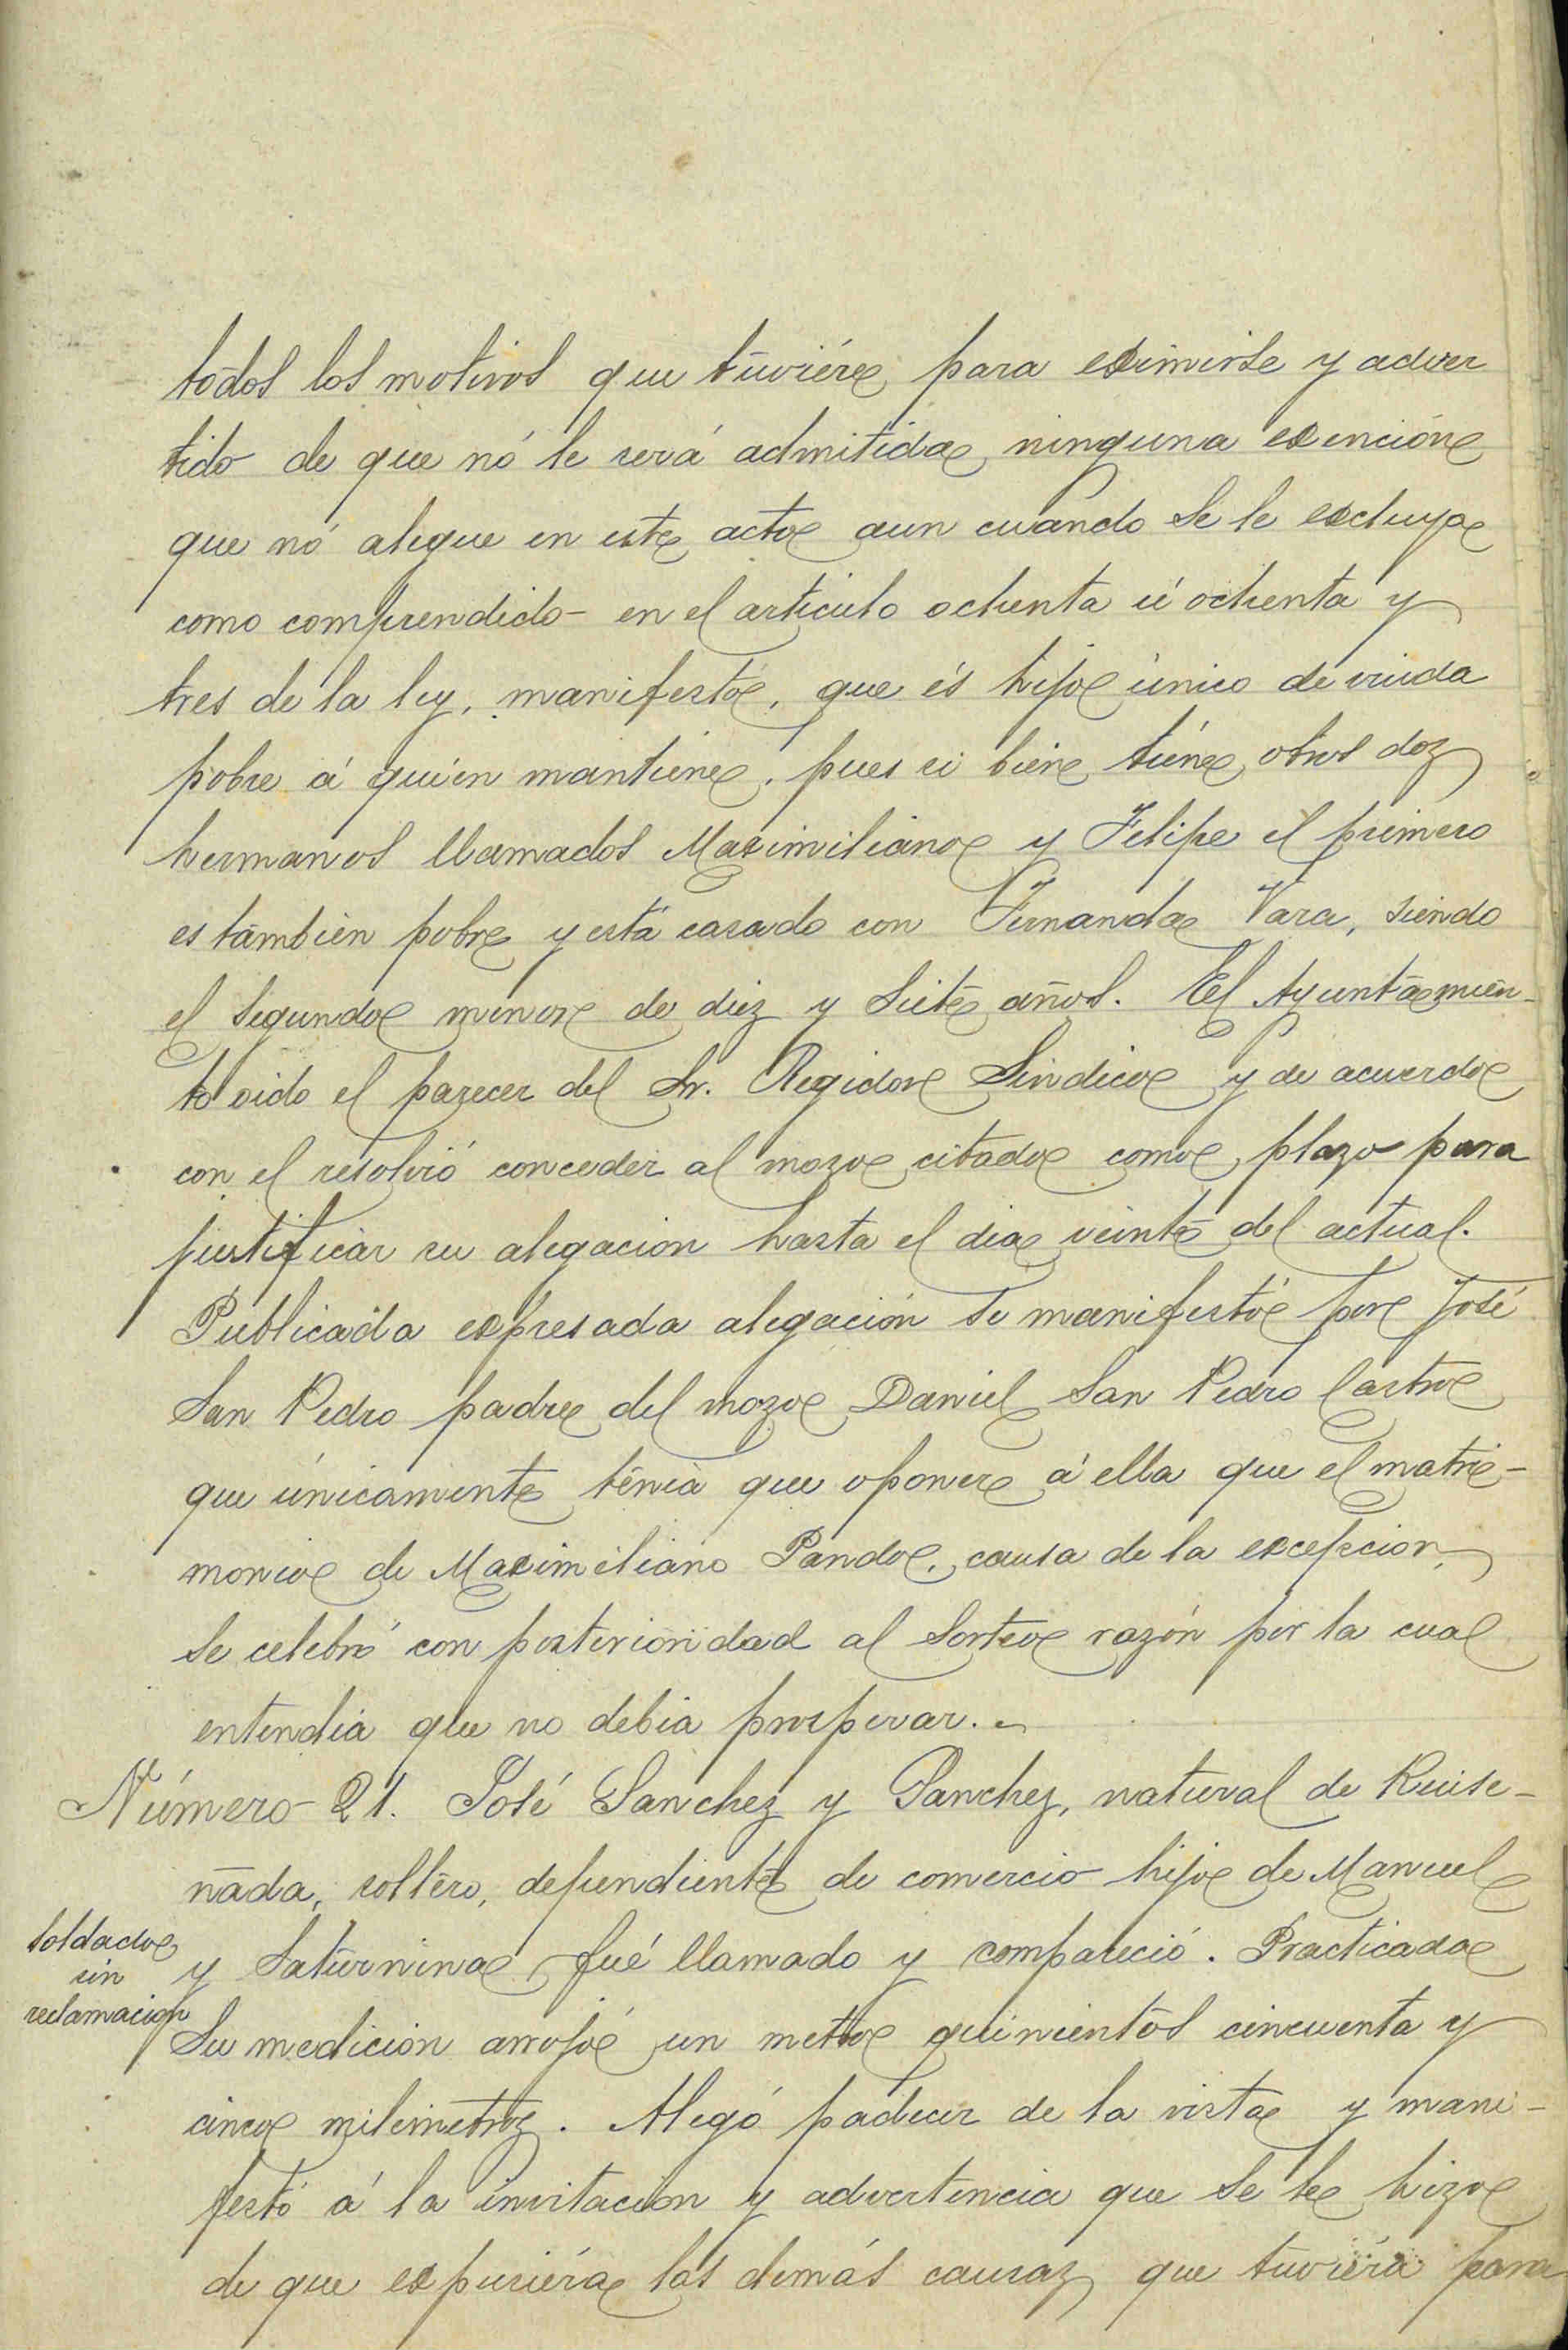 todos los motivos que tuviére para eximirse y adver
tido de que nó le será admitida ninguna exención
que nó alegue en este acto aun cuando se le excluya
como comprendido en el articulo ochenta ú ochenta y
tres de la ley, manifestó, que és hijo único de viuda
pobre á quien mantiene, pues si bien tiene otros doz
hermanos llamados Maximiliano y Felipe el primero
es tambien pobre y está casado con Fernanda Vara, siendo
el segundo menor de diez y siete años. El Ayuntamien-
to oido el parecer del Sr. Regidor Sindico y de acuerdo
con el resolvió conceder al mozo citado como plazo para
justificar su alegacion hasta el dia veinte del actual.
Publicada expresada alegación se manifestó por José
San Pedro padre del mozo Daniel San Pedro Castro
que únicamente tenia que oponer á ella que el matri-
monio de Maximiliano Pando, causa de la excepcion,
se celebró con posterioridad al Sorteo razón por la cual
entendia que no debia prosperar.
Número 21. José Sanchez y Sanchez, natural de Ruise-
ñada, soltero, dependiente de comercio hijo de Manuel
soldado
sin
reclamacion
y Saturnina, fué llamado y compareció. Practicada
su medicion arrojó un metro quinientos cincuenta y
cinco milimetroz. Alegó padecer de la vista y mani-
festó á la invitacion y advertencia que se le hizo
de que expusiéra las demás causaz que tuviéra para